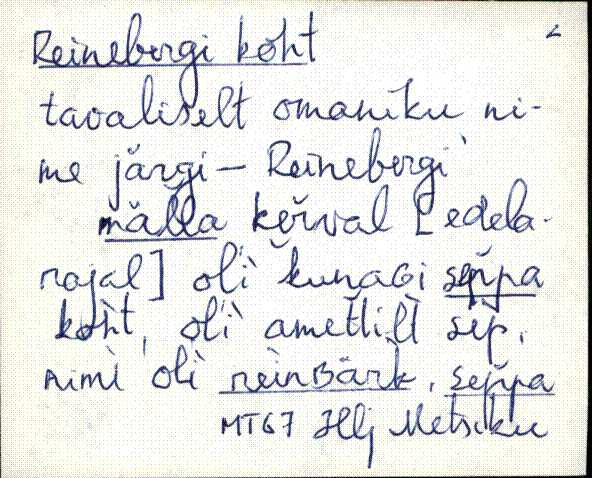 2
Reinebergi koht
tavaliselt omaniku ni-
me järgi — Reinebergi
mälla kõrval [edela-
rajal] oli kunaGi sep̆pa
koht, oli ametilt sep̆,
nimi oli reinBärk, sep̆pa
MT67 Hlj Metsiku